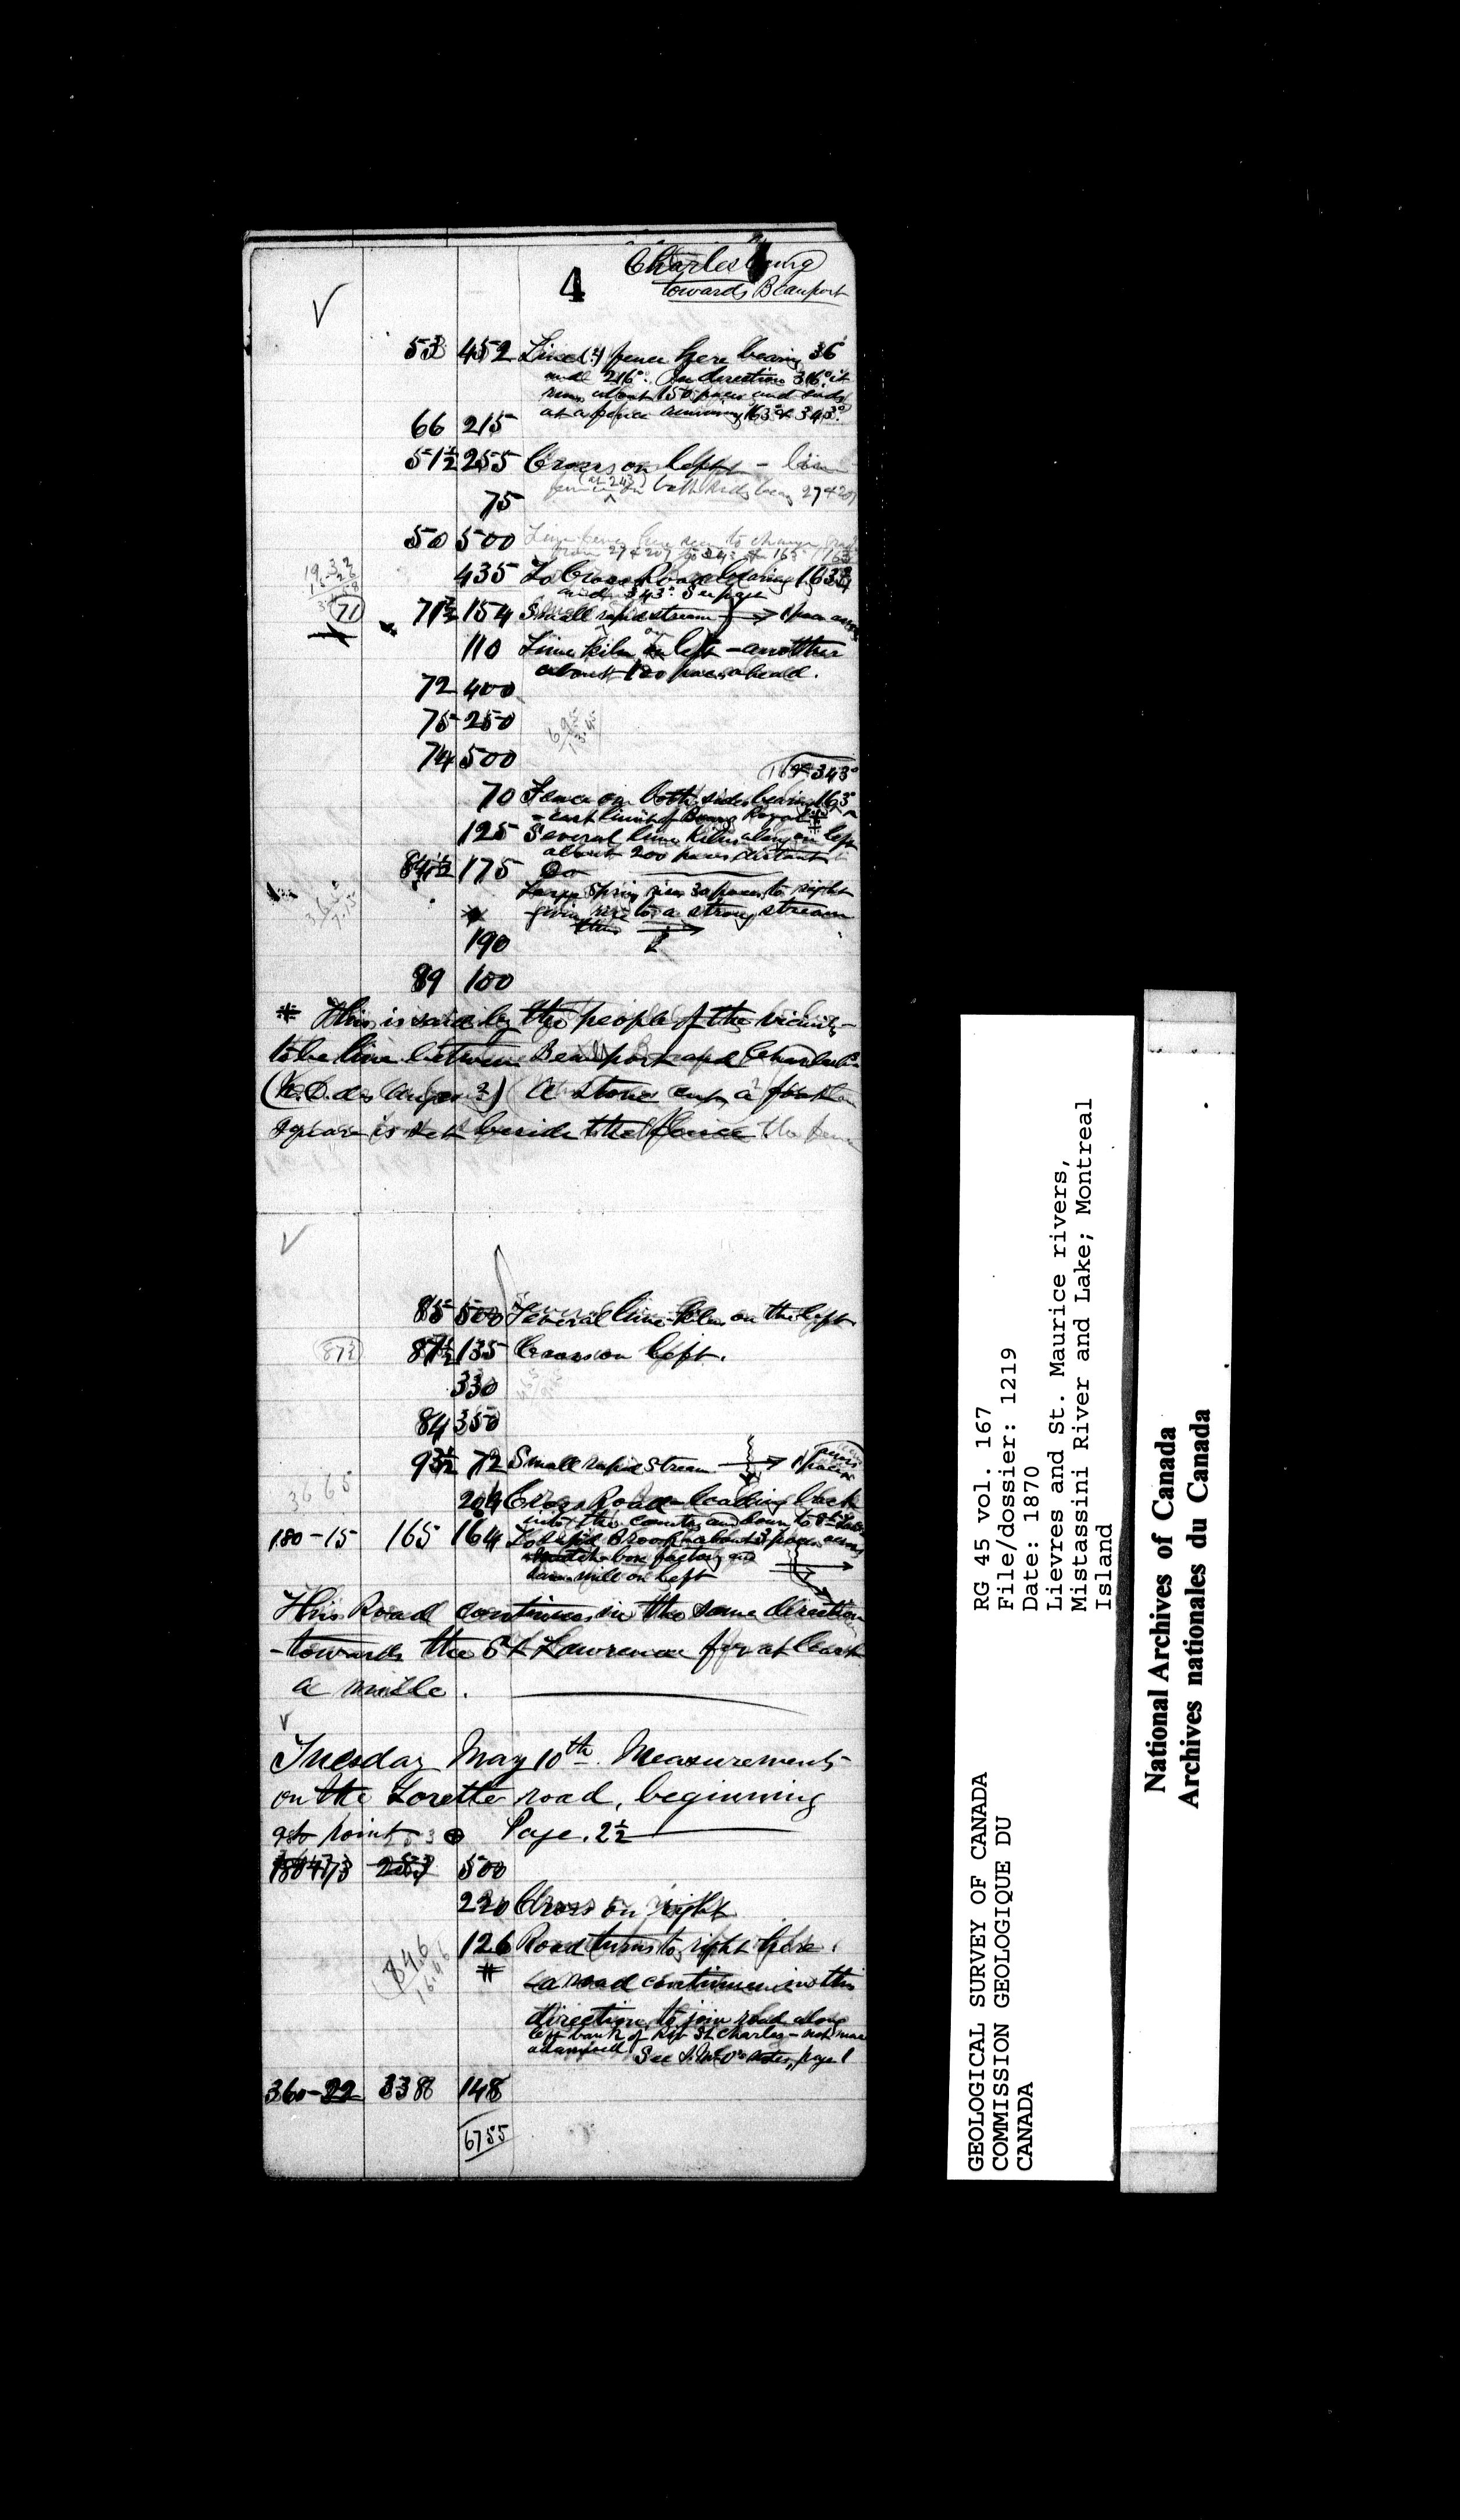 4
Charlesbourg
towards Beauport
53 452 Line (?) fence here bearing 36
and 216°. In direction 36° it
runs about 150 paces and ends
at a fence running 163° & 343°.
66 215
51½ 255 Cross on left - Line
fence (at 243) on both sides bearing 27 & 207
75
50 500 Line fences here seem to change
from 27 & 207 to 343 & 163
435 To Cross Road bearing 163
and 343° See page
71
71½ 154 Small rapid stream → 1 pace across
110 Lime kiln on left - another
about 120 paces ahead.
72 400
75 250
695
13.45
74 500
163 & 343°
70 Fence on both sides bearing 163°
- east limit of Bourg Royal #
125 Several lime kilns along on left
about 200 paces distant
84½ 175 Do
Large Spring rises 30 paces to right
giving rise to a strong stream
thus
190
89 100
# This is said by the people of the vicinity
to be line between Beauport and Charlesb.
(N.D. des Anges?) A stone cup, a foot
square is set beside the fence
85 500 Several lime kilns on the left
87½ 87½ 135 Cross on left.
330
84 350
93½ 72 Small rapid Stream → 1 pace
3665
204 Cross Road leading back
into the country and down to St
180-15 165 164 To Brook about 3 paces across
match-box factory and
saw-mill on left
This Road continues in the same direction
- towards the St Lawrence for at least
a mile.
Tuesday May 10th. Measurements
on the Lorette road, beginning
at point ⊕ Page. 2½
180+73 253 500
220 Cross on right
126 Road turns to right here.
846
16.46
# a road continues in this
direction, to join road along
left bank of Riv St. Charles - not mac
adamized. See notes, page 1
360-22 338 148
6755
GEOLOGICAL SURVEY OF CANADA
COMMISSION GEOLOGIQUE DU
CANADA
RG 45 vol. 167
File/dossier: 1219
Date: 1870
Lievres and St. Maurice rivers,
Mistassini River and Lake; Montreal
Island
National Archives of Canada
Archives nationales du Canada